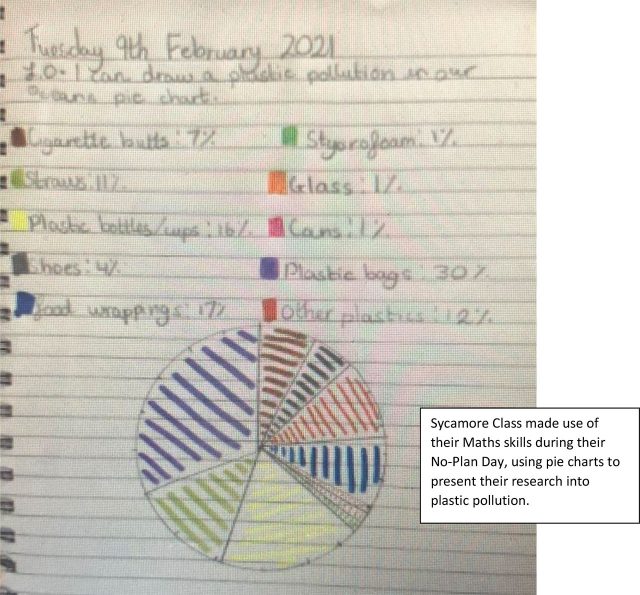 Tuesday 9th February 2021
L.O - I can draw a plastic pollution in our
Oceans pie chart.
Cigarette butts: 7%
Styorofoam: 1%
Straws: 11%
Glass: 1%
Plastic bottles/cups: 16%
Cans: 1%
Shoes: 4%
Plastic bags: 30%
Food wrappings: 17%
Other plastics: 12%
Sycamore Class made use of
their Maths skills during their
No-Plan Day, using pie charts to
present their research into
plastic pollution.